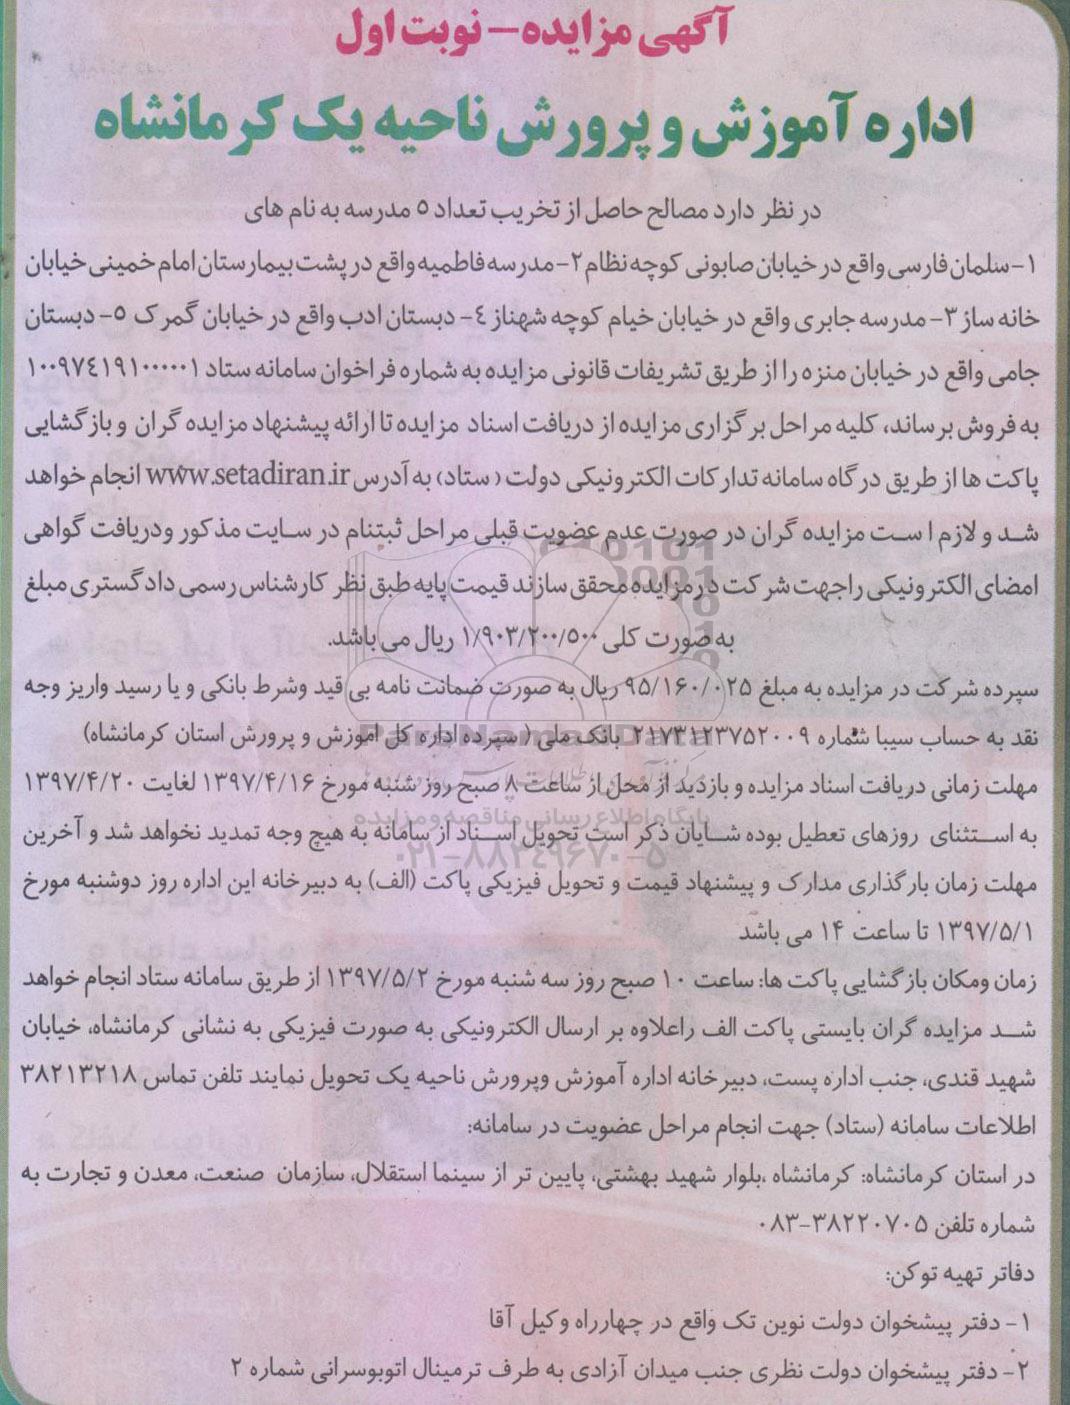 آگهی مزایده- نوبت اول
اداره آموزش و پرورش ناحیه یک کرمانشاه
در نظر دارد مصالح حاصل از تخریب تعداد ۵ مدرسه به نام های
۱-سلمان فارسی واقع در خیابان صابونی کوچه نظام ۲-مدرسه فاطمیه واقع در پشت بیمارستان امام خمینی خیابان
خانه ساز ۳- مدرسه جابری واقع در خیابان خیام کوچه شهناز ۴- دبستان ادب واقع در خیابان گمرک ۵- دبستان
جامی واقع در خیابان منزه را از طریق تشریفات قانونی مزایده به شماره فراخوان سامانه ستاد ۱۰۰۹۷۴۱۹۱۰۰۰۰۰۱
به فروش برساند، کلیه مراحل برگزاری مزایده از دریافت اسناد مزایده تا ارائه پیشنهاد مزایده گران و بازگشایی
پاکت ها از طریق درگاه سامانه تدارکات الکترونیکی دولت (ستاد) به آدرس www.setadiran.ir انجام خواهد
شد و لازم است مزایده گران در صورت عدم عضویت قبلی مراحل ثبتنام در سایت مذکور ودریافت گواهی
امضای الکترونیکی را جهت شرکت در مزایده محقق سازند قیمت پایه طبق نظر کارشناس رسمی دادگستری مبلغ
به صورت کلی ۱/۹۰۳/۲۰۰/۵۰۰ ریال می باشد.
سپرده شرکت در مزایده به مبلغ ۹۵/۱۶۰/۰۲۵ ریال به صورت ضمانت نامه بی قید وشرط بانکی و یا رسید واریز وجه
نقد به حساب سیبا شماره ۲۱۷۳۱۲۳۷۵۲۰۰۹ بانک ملی (سپرده اداره کل آموزش و پرورش استان کرمانشاه)
ParsNamadData
مهلت زمانی دریافت اسناد مزایده و بازدید از محل از ساعت ۸ صبح روز شنبه مورخ ۱۳۹۷/۴/۱۶ لغایت ۱۳۹۷/۴/۲۰
پایگاه اطلاع رسانی مناقصه و مزایده
به استثنای روزهای تعطیل بوده شایان ذکر است تحویل اسناد از سامانه به هیچ وجه تمدید نخواهد شد و آخرین
۰۲۱-۸۸۳۴۹۶۷۰-۵
مهلت زمان بارگذاری مدارک و پیشنهاد قیمت و تحویل فیزیکی پاکت (الف) به دبیرخانه این اداره روز دوشنبه مورخ
۱۳۹۷/۵/۱ تا ساعت ۱۴ می باشد
زمان ومکان بازگشایی پاکت ها: ساعت ۱۰ صبح روز سه شنبه مورخ ۱۳۹۷/۵/۲ از طریق سامانه ستاد انجام خواهد
شد مزایده گران بایستی پاکت الف راعلاوه بر ارسال الکترونیکی به صورت فیزیکی به نشانی کرمانشاه، خیابان
شهید قندی، جنب اداره پست، دبیرخانه اداره آموزش وپرورش ناحیه یک تحویل نمایند تلفن تماس ۳۸۲۱۳۲۱۸
اطلاعات سامانه (ستاد) جهت انجام مراحل عضویت در سامانه:
در استان کرمانشاه: کرمانشاه ،بلوار شهید بهشتی، پایین تر از سینما استقلال، سازمان صنعت، معدن و تجارت به
شماره تلفن ۳۸۲۲۰۷۰۵-۰۸۳
دفاتر تهیه توکن:
۱- دفتر پیشخوان دولت نوین تک واقع در چهارراه وکیل آقا
۲- دفتر پیشخوان دولت نظری جنب میدان آزادی به طرف ترمینال اتوبوسرانی شماره ۲